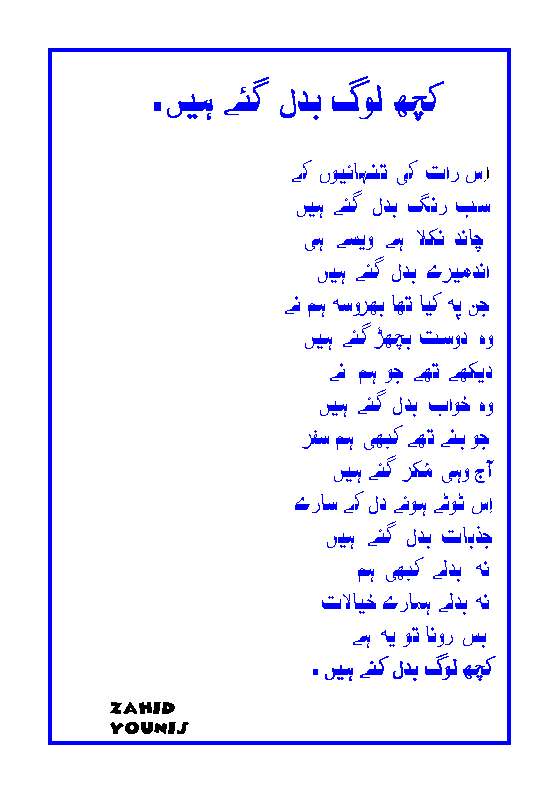 کچھ لوگ بدل گئے ہیں۔
اِس رات کی تنہائیوں کے
سب رنگ بدل گئے ہیں
چاند نکلا ہے ویسے ہی
اندھیرے بدل گئے ہیں
جن پہ کیا تھا بھروسہ ہم نے
وہ دوست بچھڑ گئے ہیں
دیکھے تھے جو ہم نے
وہ خواب بدل گئے ہیں
جو بنے تھے کبھی ہم سفر
آج وہی مُکر گئے ہیں
اِس ٹوٹے ہوئے دل کے سارے
جذبات بدل گئے ہیں
نہ بدلے کبھی ہم
نہ بدلے ہمارے خیالات
بس رونا تو یہ ہے
کچھ لوگ بدل گئے ہیں ۔
ZAHID
YOUNIS